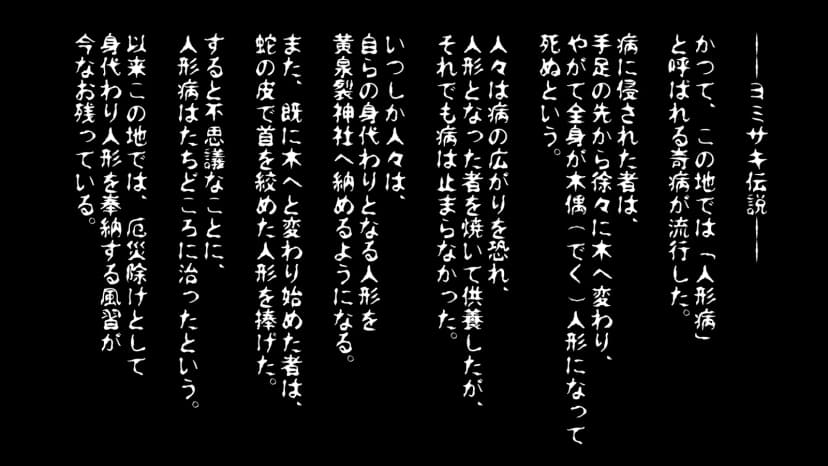 ――ヨミサキ伝説――
かつて、この地では「人形病」
と呼ばれる奇病が流行した。
病に侵された者は、
手足の先から徐々に木へ変わり、
やがて全身が木偶（でく）人形になって
死ぬという。
人々は病の広がりを恐れ、
人形となった者を焼いて供養したが、
それでも病は止まらなかった。
いつしか人々は、
自らの身代わりとなる人形を
黄泉裂神社へ納めるようになる。
また、既に木へと変わり始めた者は、
蛇の皮で首を絞めた人形を捧げた。
すると不思議なことに、
人形病はたちどころに治ったという。
以来この地では、厄災除けとして
身代わり人形を奉納する風習が
今なお残っている。